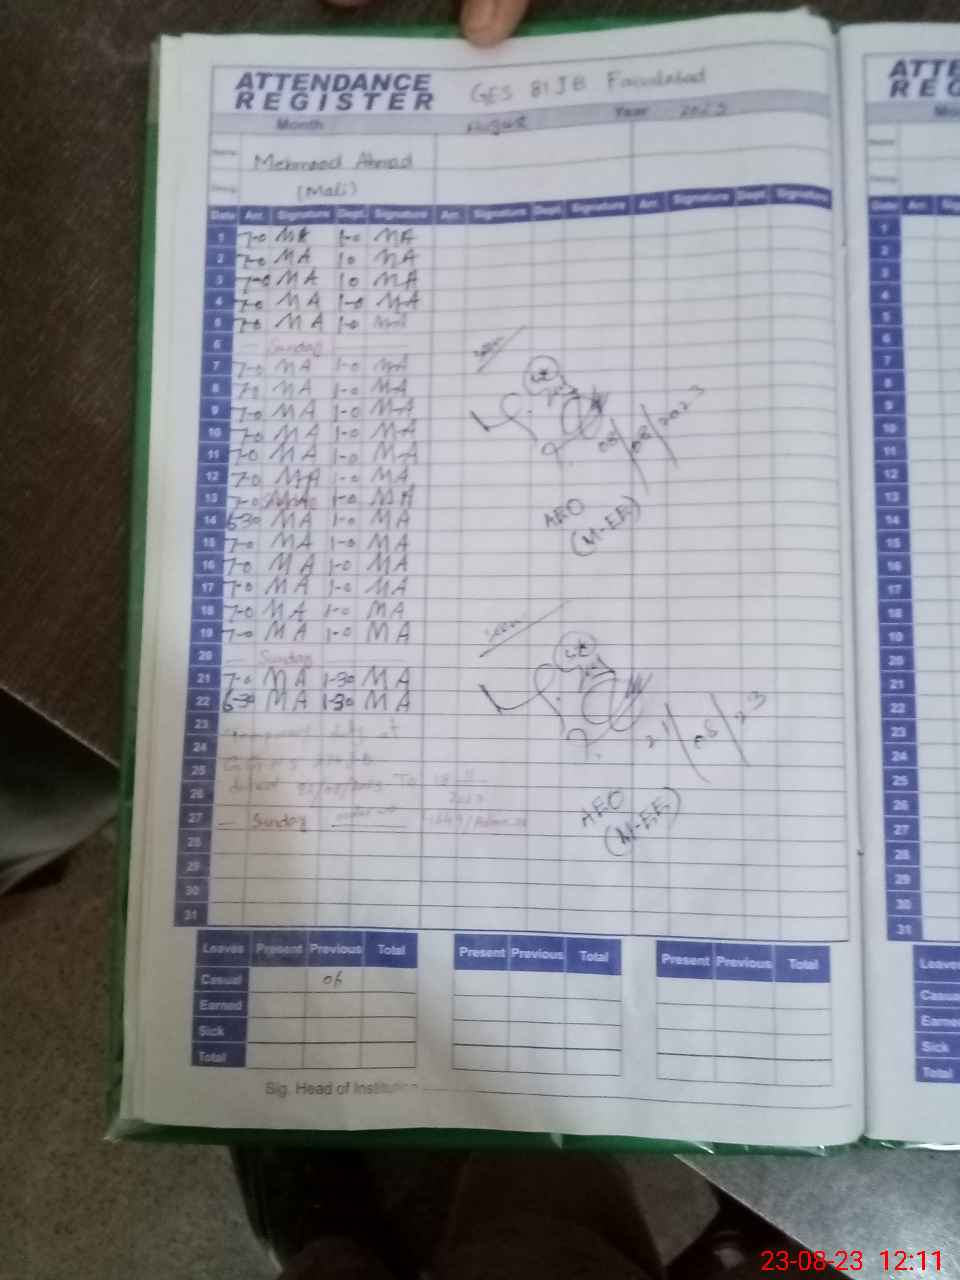 ATTENDANCE REGISTER GES 81 JB Faisalabad
Month August Year 2023
Name Mehmood Ahmad
(Mali)
Date Arr. Signature Dept. Signature Arr. Signature Dept. Signature Arr. Signature Dept. Signature
1 7-0 MA 1-0 MA
2 7-0 MA 10 MA
3 7-0 MA 10 MA
4 7-0 MA 1-0 MA
5 7-0 MA 1-0 MA
6 Sunday
7 7-0 MA 1-0 MA
8 7-0 MA 1-0 MA
9 7-0 MA 1-0 MA
10 7-0 MA 1-0 MA
11 7-0 MA 1-0 MA
12 7-0 MA 1-0 MA
13 7-0 1-0 MA
14 6-30 MA 1-0 MA
15 7-0 MA 1-0 MA
16 7-0 MA 1-0 MA
17 7-0 MA 1-0 MA
18 7-0 MA 1-0 MA
19 7-0 MA 1-0 MA
20 Sunday
21 7-0 MA 1-30 MA
22 6-30 MA 1-30 MA
23
24
25
26
27 Sunday
28
29
30
31
Seen
08/08/2023
AEO
(M-EE)
Seen
21/08/23
AEO
(M-EE)
Leaves Present Previous Total Present Previous Total Present Previous Total
Casual 06
Earned
Sick
Total
Sig. Head of Institution
ATTE
REG
Date Arr.
1
2
3
4
5
6
7
8
9
10
11
12
13
14
15
16
17
18
19
20
21
22
23
24
25
26
27
28
29
30
31
Leaves
Casual
Earned
Sick
Total
23-08-23 12:11